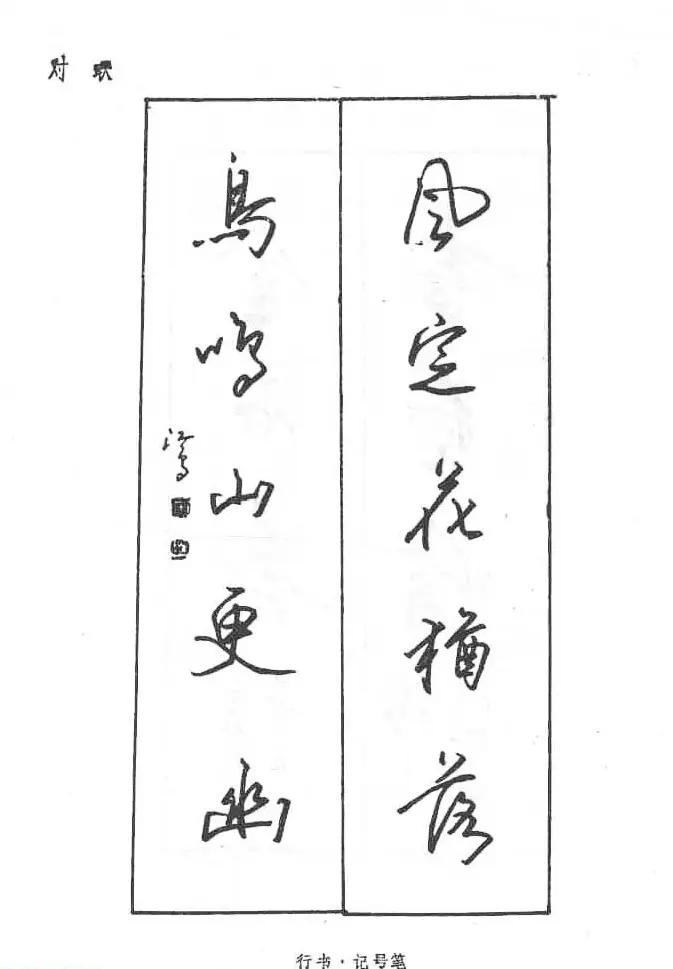 对联
风定花猶落
鳥鳴山更幽
行书·记号笔